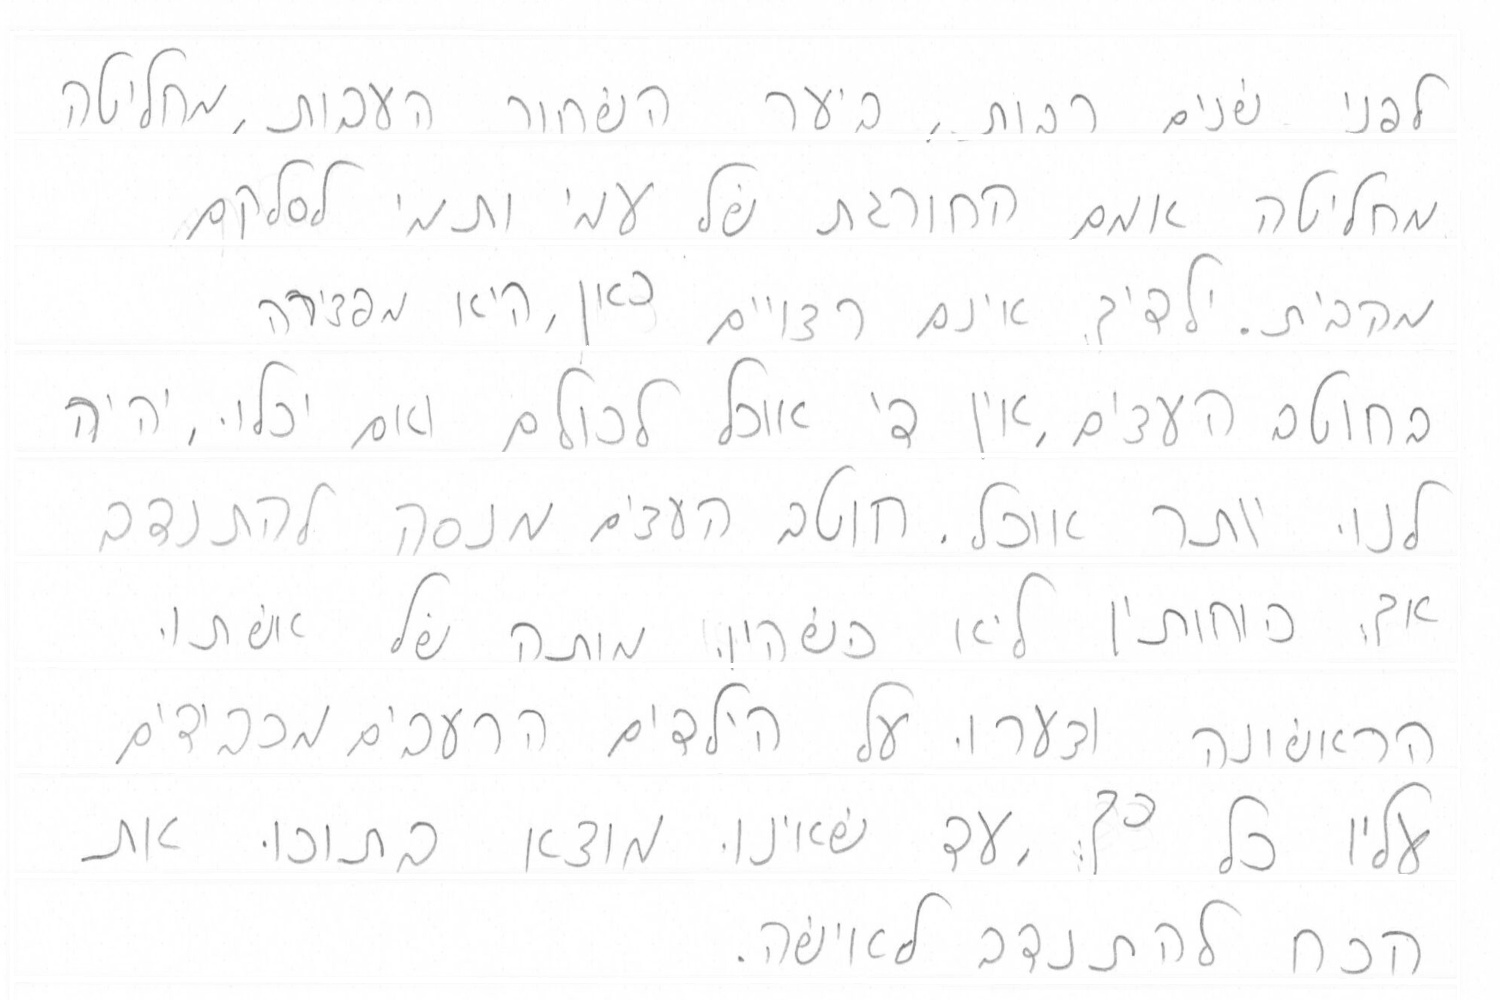 לפני שנים רבות, ביער השחור העבות, מחליטה
מחליטה אמם החורגת של עמי ותמי לסלקם
מהבית. ילדיך אינם רצויים כאן, היא מפצירה
בחוטב העצים, אין די אוכל לכולם ואם יכלו, יהיה
לנו יותר אוכל. חוטב העצים מנסה להתנדב
אך כוחותיו לא כשהיו. מותה של אשתו
הראשונה וצערו על הילדים הרעבים מכבידים
עליו כל כך, עד שאינו מוצא בתוכו את
הכח להתנדב לאישה.